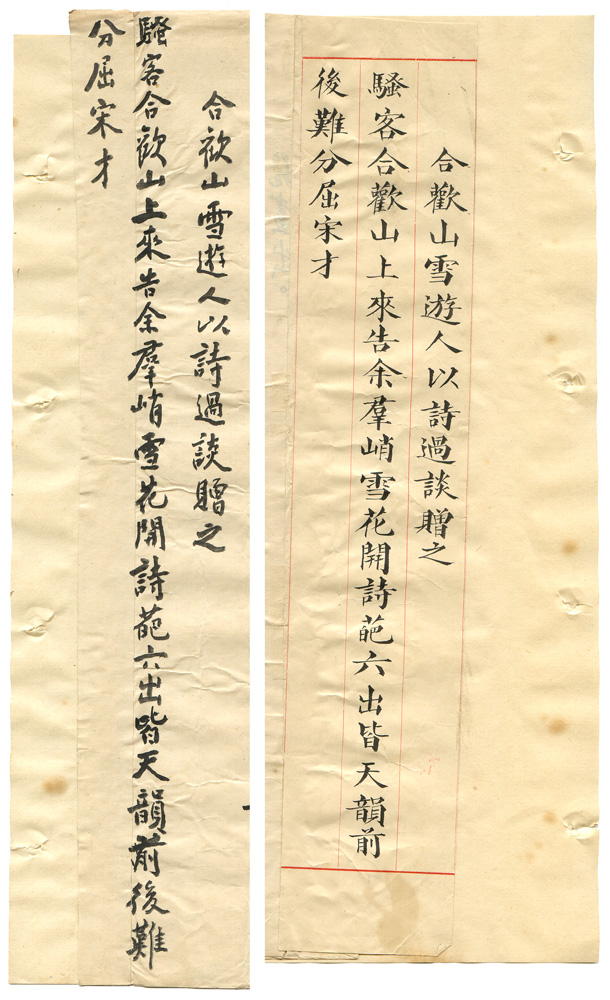 合歡山雪遊人以詩過談贈之
騷客合歡山上來告余羣峭雪花開詩葩六出皆天韻前
後難分屈宋才
合歡山雪遊人以詩過談贈之
騷客合歡山上來告余羣峭雪花開詩葩六出皆天韻前後難
分屈宋才